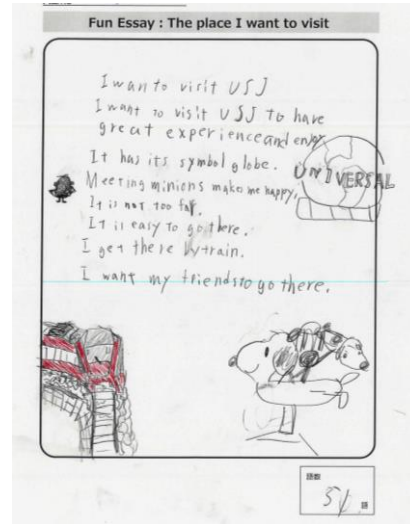 Fun Essay : The place I want to visit
I want to visit USJ
I want to visit USJ to have
great experience and enjoy
It has its symbol globe.
UNIVERSAL
Meeting minions make me happy.
It is not too far.
It is easy to go there.
I get there by train.
I want my friends to go there.
語数
語